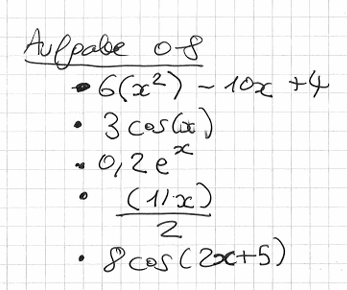 Aufgabe 08
• 6(x²) - 10x + 4
• 3 cos(x)
• 0,2e^x
• (1/x)/2
• 8 cos(2x+5)